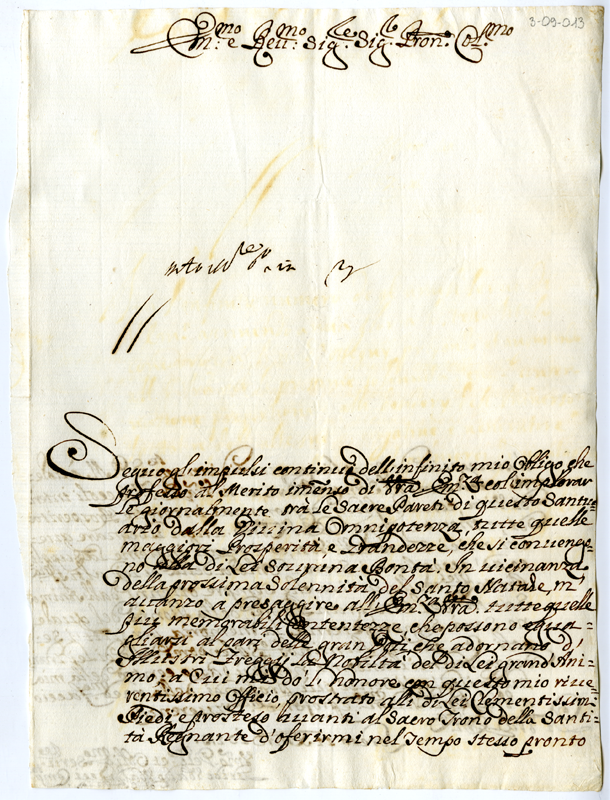 3-09-013
Em:mo e Reu:mo Sig:re Sig:r Pron: Col:mo
Seguo gli impulsi continui dell'infinito mio Obligo, che
professo al Merito imenso di Vra Em:za col implorar
le giornalmente tra le Sacre Pareti di questo Santu-
ario dalla Diuina Omnipotenza, tutte quelle
maggiori Prosperità e Grandezze, che si conuengo-
no alla di Lei Sourana Bontà. In uicinanza
della prossima Solennità del Santo Natale, m'
auanzo a presaggire all' Em:za Vra tutte quelle
più memorabili Contentezze, che possono egua-
gliarsi al pari delle gran Doti, che adornano d'
Illustri Freggi la Nobiltà del di Lei grand'Ani-
mo; a Cui mi do l'honore con questo mio riue-
rentissimo Officio, prostrato agli di Lei Clementissimi
Piedi e prosteso auanti al Sacro Trono della Santi-
tà Regnante d'oferirmi nel Tempo stesso pronto